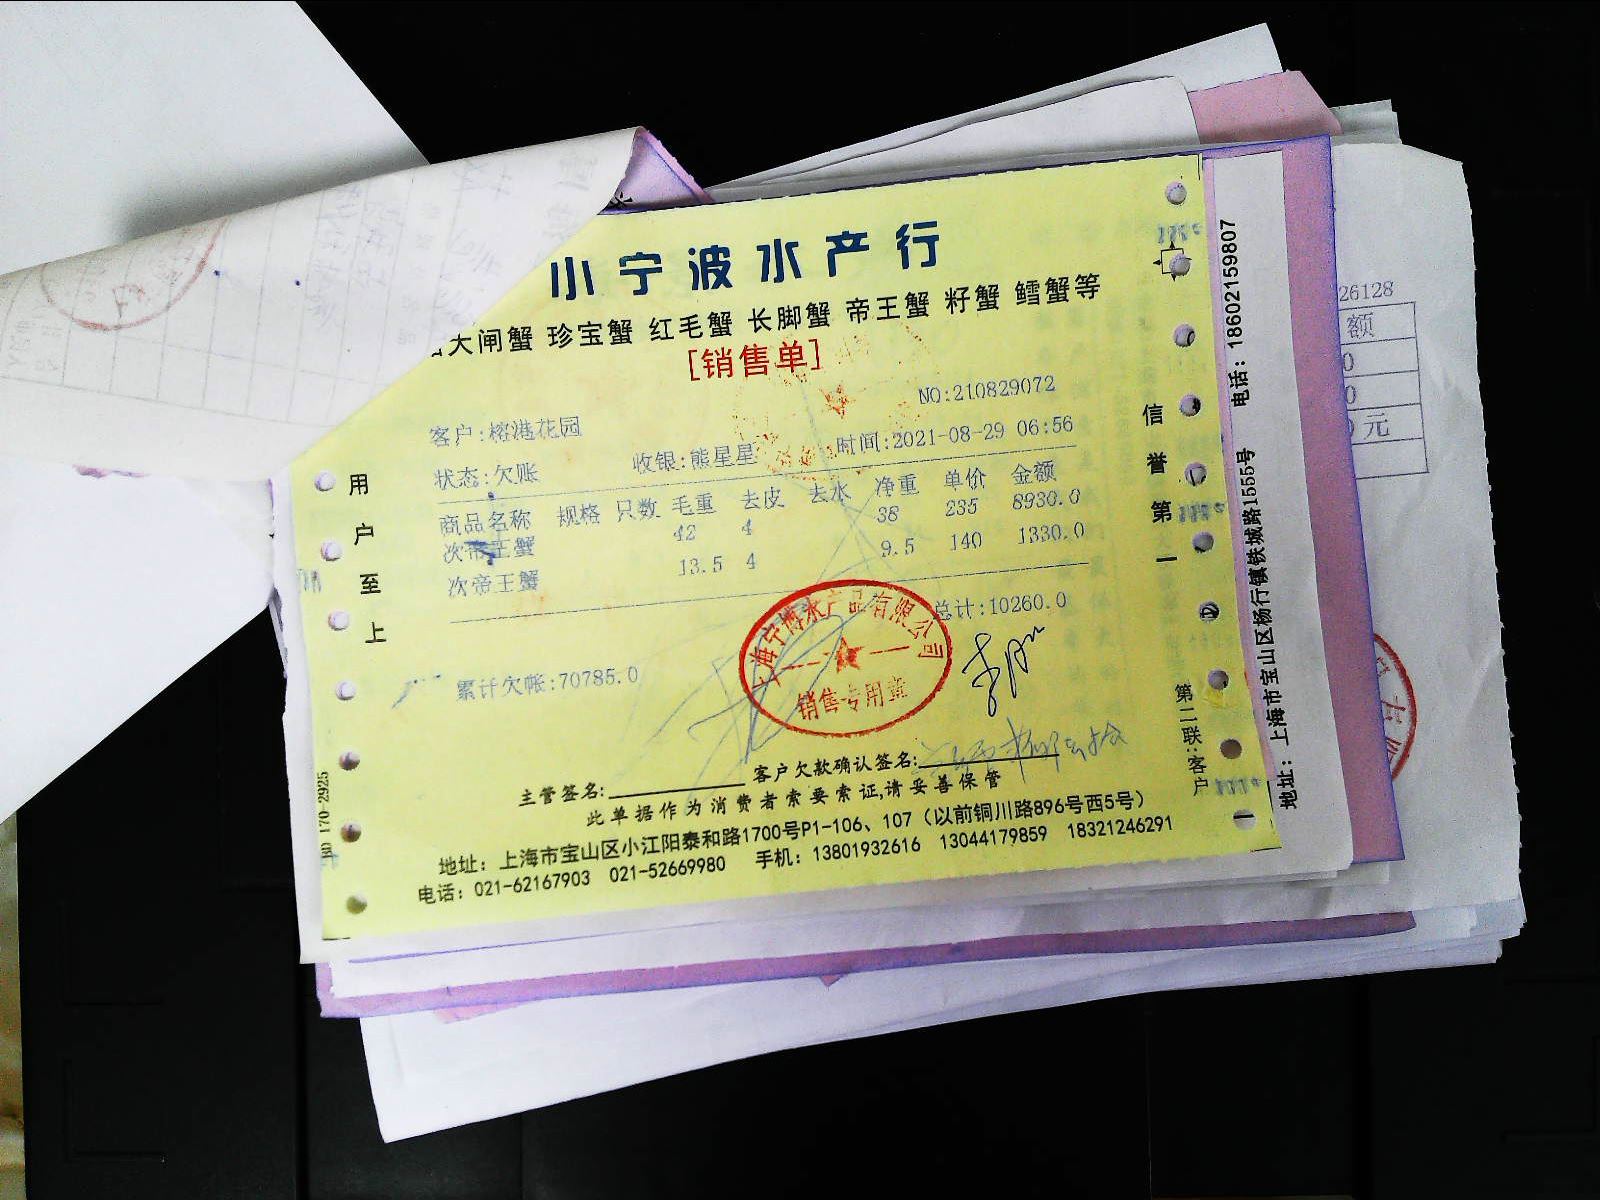 小宁波水产行
大闸蟹 珍宝蟹 红毛蟹 长脚蟹 帝王蟹 籽蟹 鳕蟹等
[销售单]
NO:210829072
客户:榕港花园
状态:欠账 收银:熊星星 时间:2021-08-29 06:56
商品名称 规格 只数 毛重 去皮 去水 净重 单价 金额
次帝王蟹 42 4 38 235 8930.0
次帝王蟹 13.5 4 9.5 140 1330.0
总计:10260.0
累计欠帐:70785.0
上海宁博水产品有限公司
销售专用章
主管签名: 客户欠款确认签名:
此单据作为消费者索要索证,请妥善保管
地址：上海市宝山区小江阳泰和路1700号P1-106、107（以前铜川路896号西5号）
电话：021-62167903 021-52669980 手机：13801932616 13044179859 18321246291
用户至上
信誉第一
第二联:客户
170-2925
地址：上海市宝山区杨行镇铁城路1555号 电话：18602159807
26128
额
0
0
0元